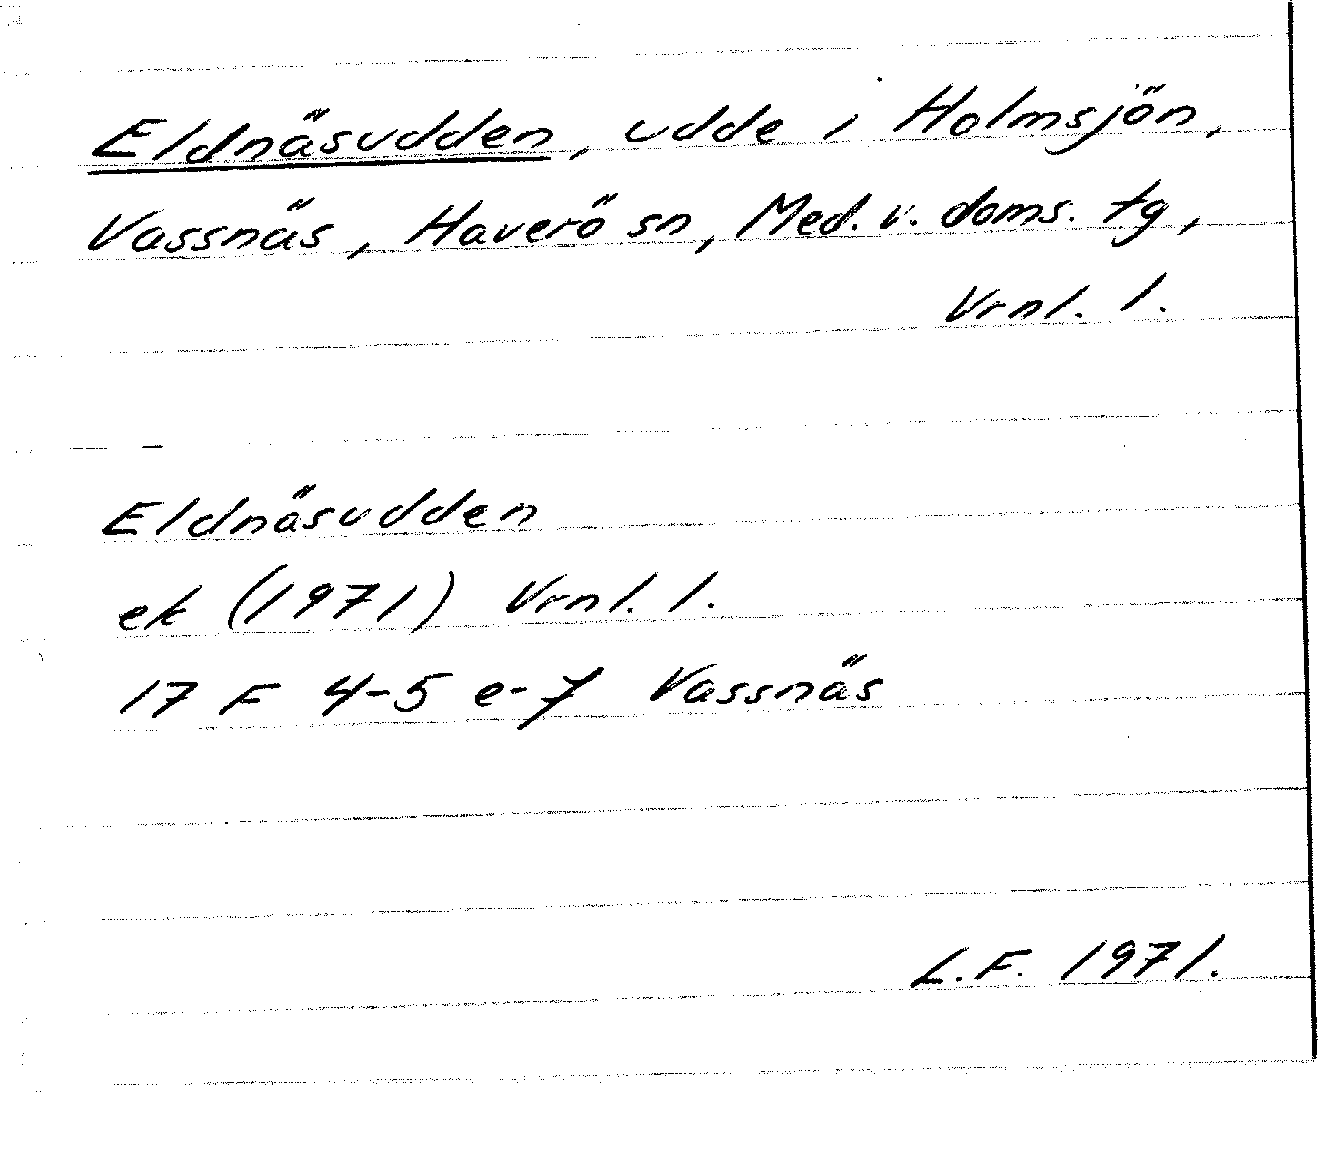 Eldnäsudden, udde i Holmsjön,
Vassnäs, Haverö sn, Med. v. doms. tg,
Vrnl. l.
Eldnäsudden
ek (1971) Vrnl. l.
17 F 4-5 e-f Vassnäs
L.F. 1971.